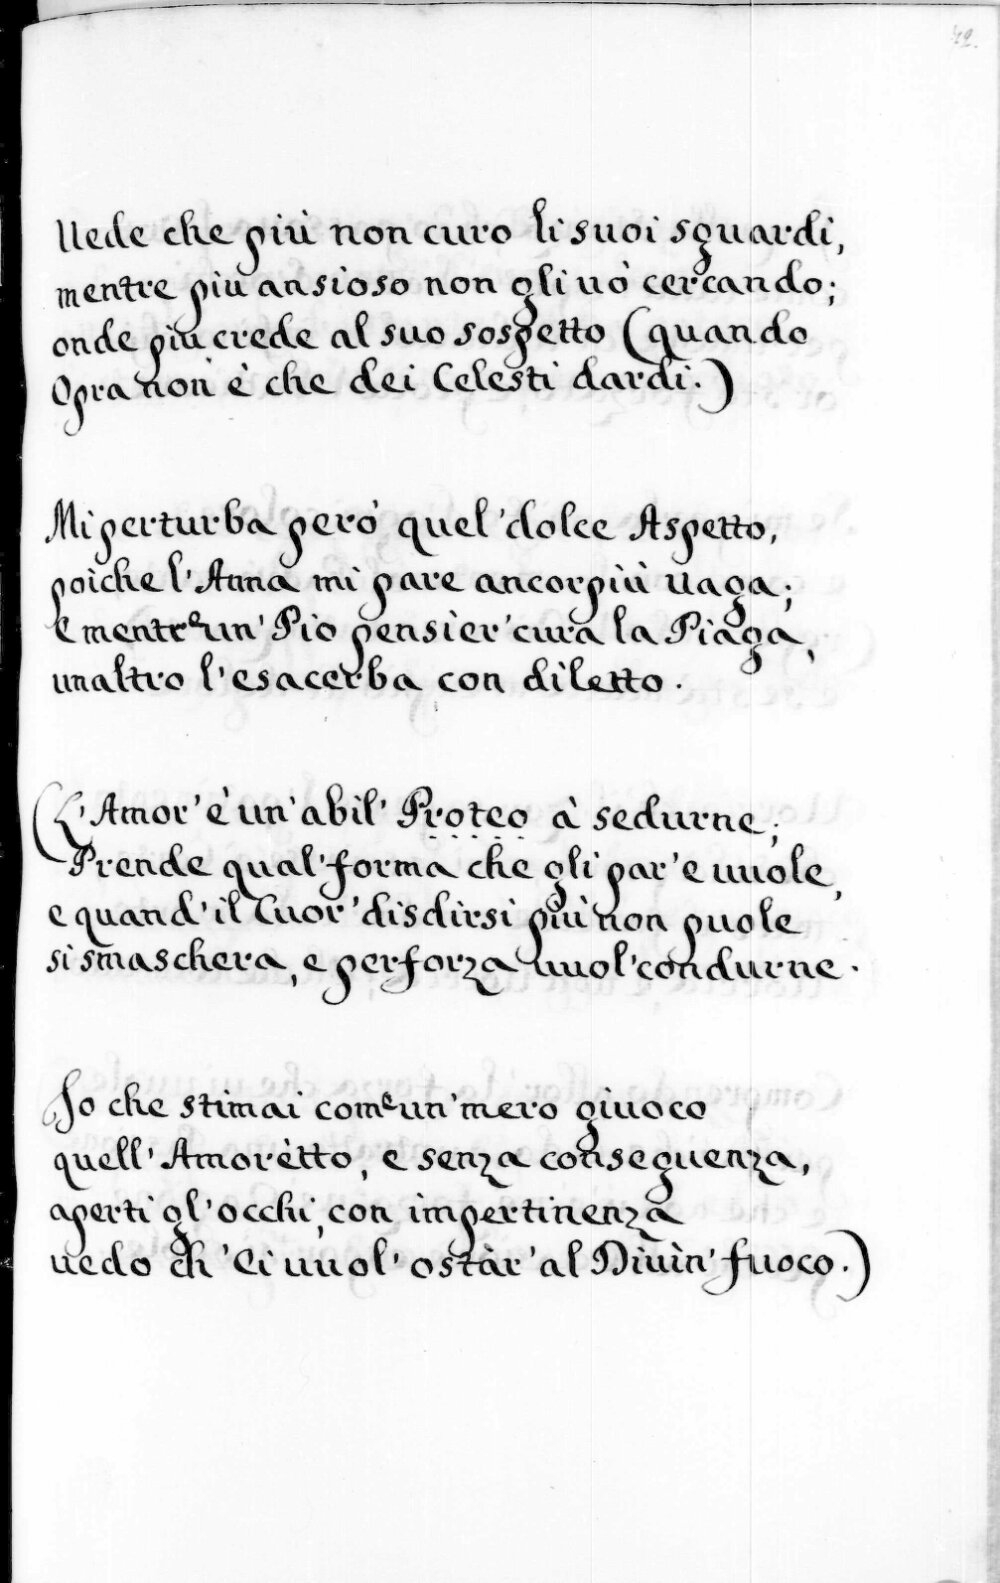 42.
Uede che più non curo li suoi sguardi,
mentre più ansioso non gli uò cercando;
onde più crede al suo sospetto (quando
Opra non è che dei Celesti dardi.)
Mi perturba però quel' dolce Aspetto,
poiche l'Anna mi pare ancorpiù uaga;
E mentre un' Pio pensier' cura la Piaga,
unaltro l'esacerba con diletto.
(L'Amor' è un' abil' Proteo à sedurne;
Prende qual' forma che gli par' e uuole,
e quand' il Cuor' disdirsi più non puole
si smaschera, e perforza uuol' condurne.
Io che stimai come un' mero giuoco
quell' Amorètto, e senza conseguenza,
aperti gl'occhi, con impertinenza
uedo ch' Ei uuol' ostàr' al Diuìn' fuoco.)